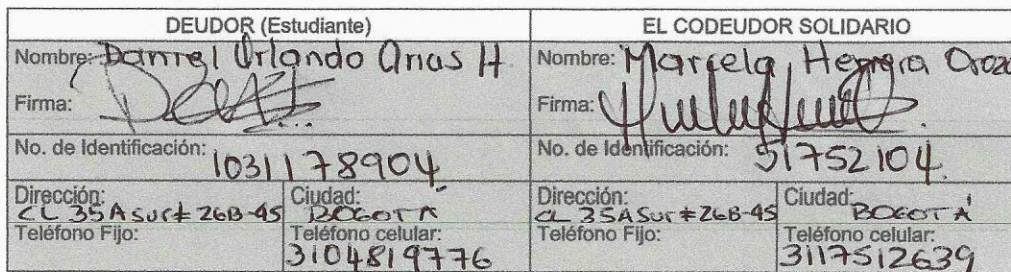 DEUDOR (Estudiante) EL CODEUDOR SOLIDARIO
Nombre: Daniel Orlando Arias H Nombre: Marcela Herrera Orozc
Firma: Firma:
No. de Identificación: 1031178904. No. de Identificación: 51752104.
Dirección: Ciudad: Dirección: Ciudad:
CL 35A Sur # 26B-45 BOGOTA CL 35A Sur # 26B-45 BOGOTÁ
Teléfono Fijo: Teléfono celular: Teléfono Fijo: Teléfono celular:
3104819776 3117512639